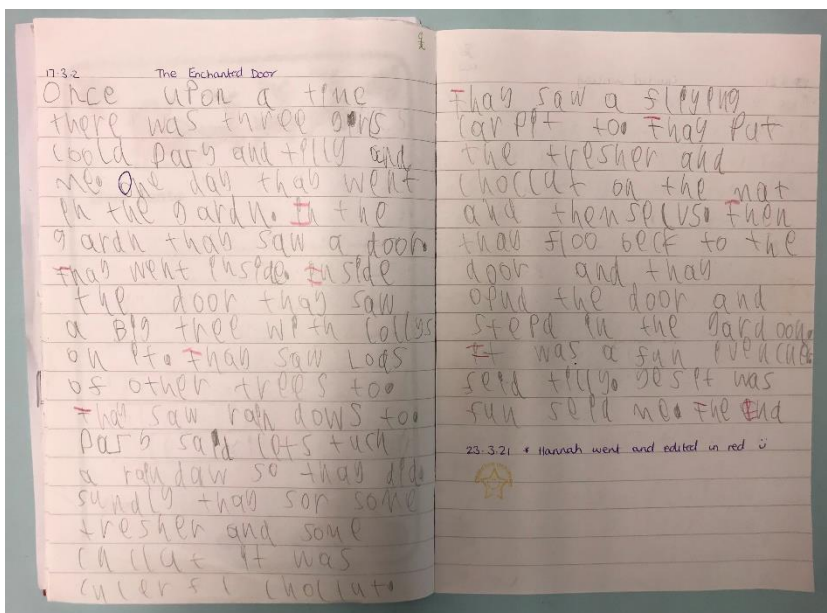 17.3.2 The Enchanted Door
Once upon a time
there was three gerls
coold parb and tilly and
me. One day thay went
in the gardn. In the
gardn thay saw a door.
Thay went inside. Inside
the door thay saw
a Big tree with lollys
on it. Thay saw Lods
of other trees too
Thay saw rain dows too
parb said lets tuch
a rain daw so thay did.
sundly thay sor some
tresher and some
it was
chollut.
Thay saw a fliying
carpit to. Thay put
the tresher and
chocclat on the mat
and themselvs. Then
thay floo beck to the
door and thay
opnd the door and
stepd in the gardoon.
It was a fun
seid tilly. yes it was
fun seid me. The End
23.3.21 * Hannah went and edited in red